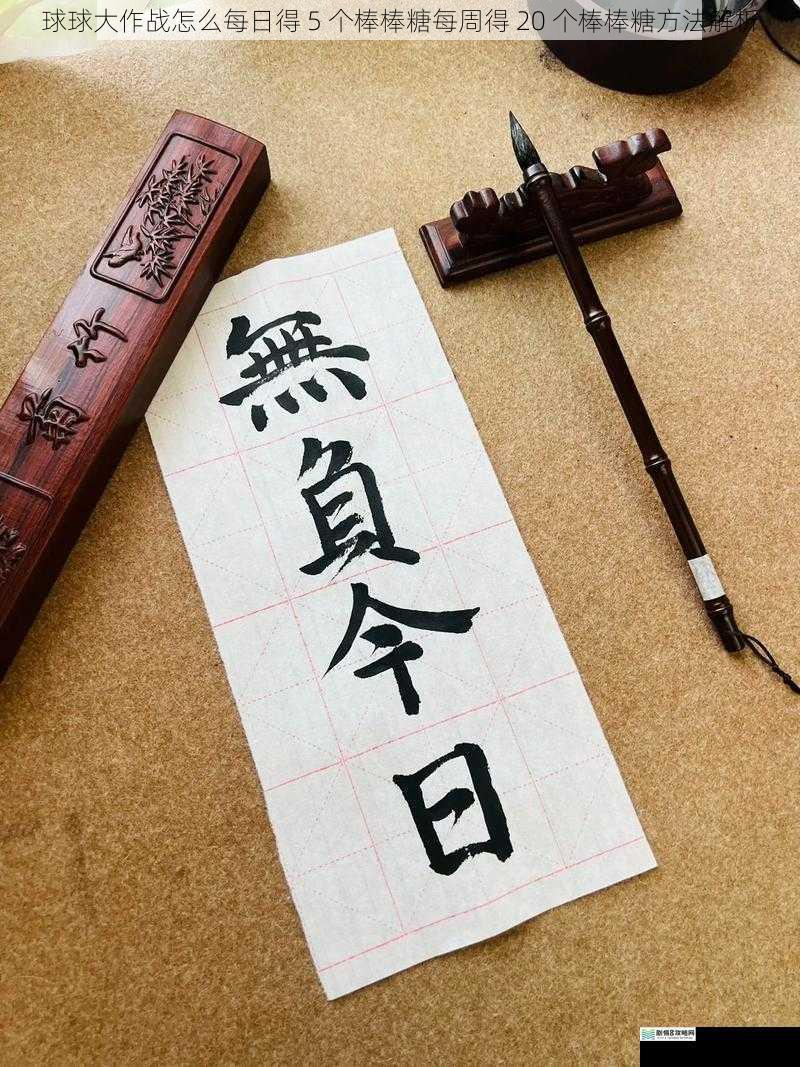 球球大作战怎么每日得 5 个棒棒糖每周得 20 个棒棒糖方法解析
竹
菊
無
負
今
日
剧情8攻略网